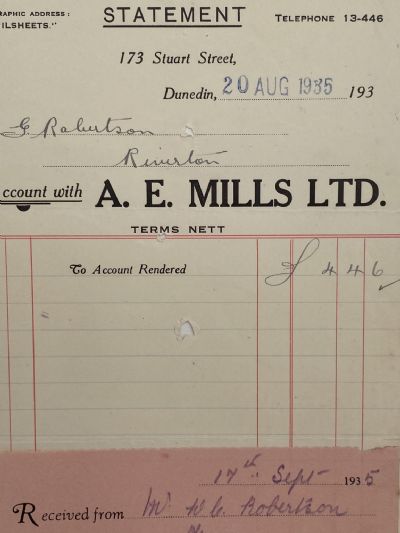 RAPHIC ADDRESS:
ILSHEETS."
STATEMENT
TELEPHONE 13-446
173 Stuart Street,
Dunedin, 20 AUG 1935 193
G Robertson
Riverton
ccount with A. E. MILLS LTD.
TERMS NETT
To Account Rendered £ 4 4 6
17th Sept 1935
Received from Mr W. G. Robertson